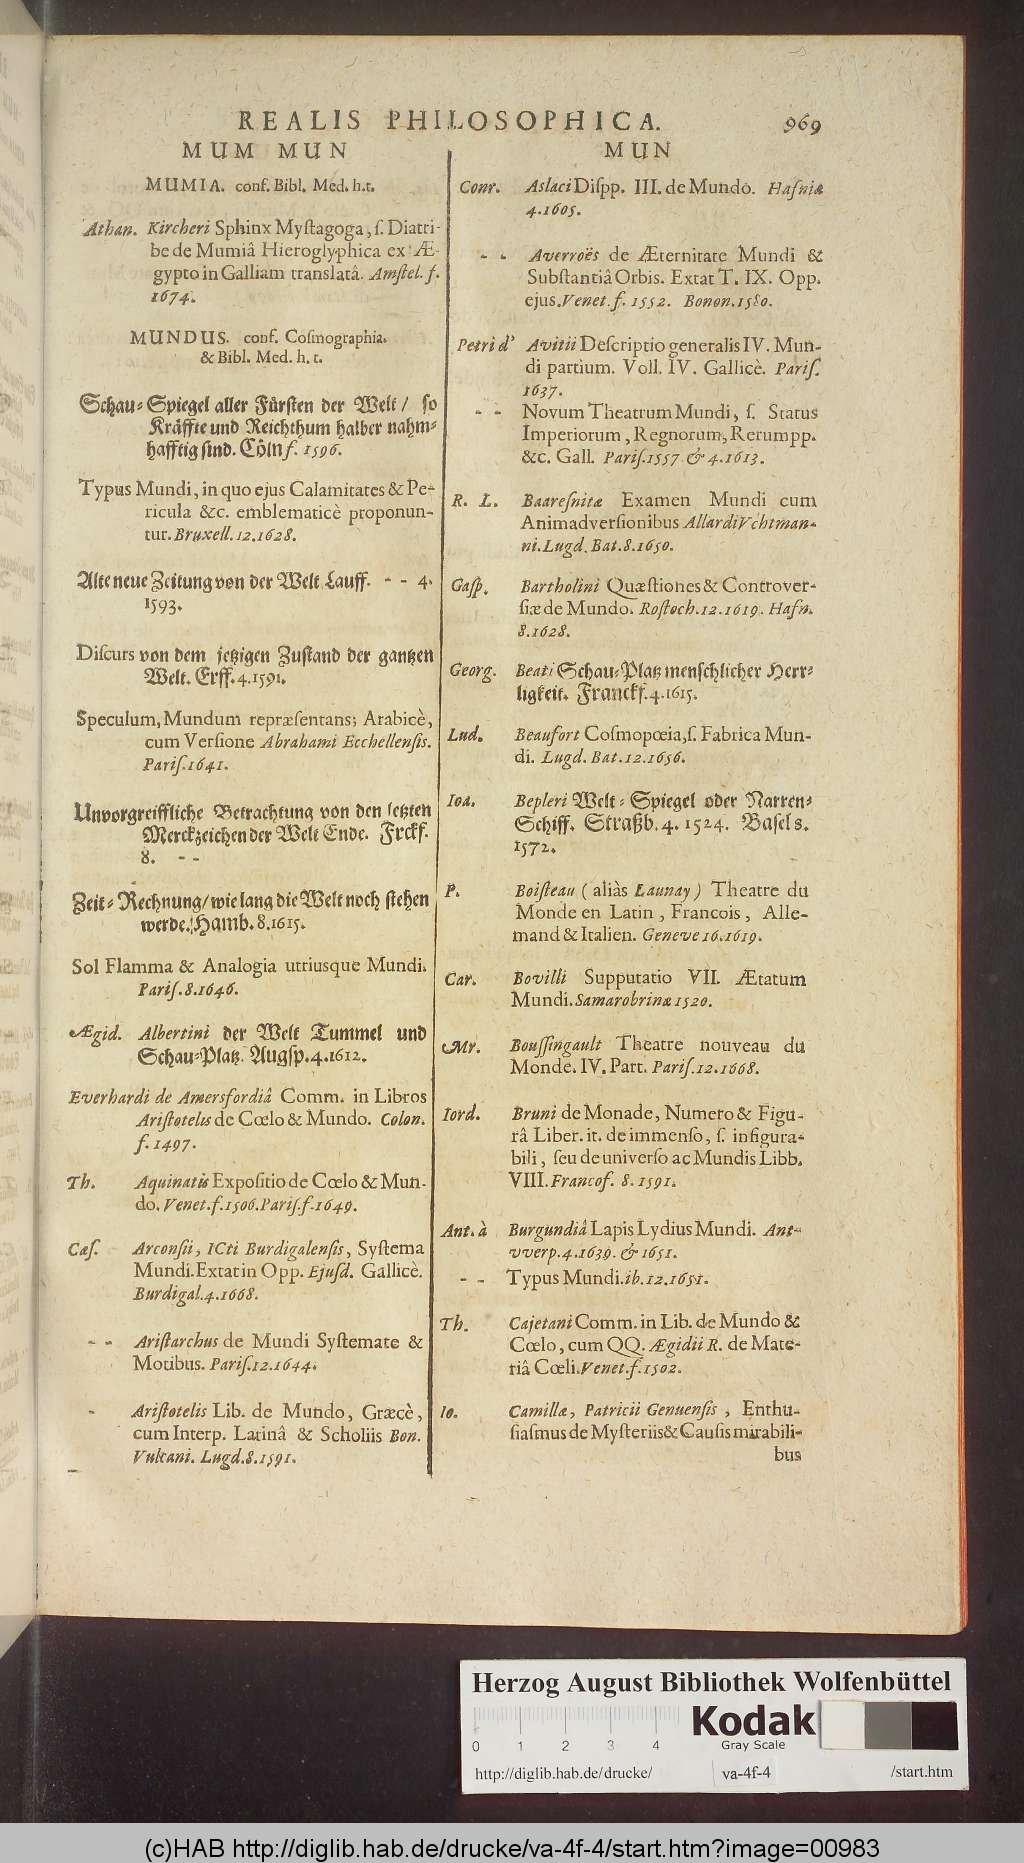 REALIS PHILOSOPHICA. 969
MUM MUN
MUMIA. conf. Bibl. Med. h.t.
Athan. Kircheri Sphinx Myſtagoga, ſ. Diatri-
be de Mumiâ Hieroglyphica ex Æ-
gypto in Galliam translatâ. Amſtel. f.
1674.
MUNDUS. conf. Coſmographia.
& Bibl. Med. h. t.
Schau-Spiegel aller Fürſten der Welt / ſo
Kräffte und Reichthum halber nahm-
hafftig ſind. Cöln f. 1596.
Typus Mundi, in quo ejus Calamitates & Pe-
ricula &c. emblematicè proponun-
tur. Bruxell. 12. 1628.
Alte neue Zeitung von der Welt Lauff. - - 4.
1593.
Diſcurs von dem jetzigen Zuſtand der gantzen
Welt. Erff. 4. 1591.
Speculum, Mundum repræſentans; Arabicè,
cum Verſione Abrahami Ecchellenſis.
Pariſ. 1641.
Unvorgreiffliche Betrachtung von den letzten
Merckzeichen der Welt Ende. Frckf.
8. - -
Zeit-Rechnung / wie lang die Welt noch ſtehen
werde. Hamb. 8. 1615.
Sol Flamma & Analogia utriusque Mundi.
Pariſ. 8. 1646.
Ægid. Albertini der Welt Tummel und
Schau-Platz. Augſp. 4. 1612.
Everhardi de Amersfordiâ Comm. in Libros
Ariſtotelis de Cœlo & Mundo. Colon.
f. 1497.
Th. Aquinatis Expoſitio de Cœlo & Mun-
do. Venet. f. 1506. Pariſ. f. 1649.
Cæſ. Arconſii, ICti Burdigalenſis, Syſtema
Mundi. Extat in Opp. Ejuſd. Gallicè.
Burdigal. 4. 1668.
- - Ariſtarchus de Mundi Syſtemate &
Motibus. Pariſ. 12. 1644.
- Ariſtotelis Lib. de Mundo, Græcè,
cum Interp. Latinâ & Scholiis Bon.
Vulcani. Lugd. 8. 1591.
MUN
Conr. Aslaci Diſpp. III. de Mundo. Hafniæ
4. 1605.
- - Averroës de Æternitate Mundi &
Subſtantiâ Orbis. Extat T. IX. Opp.
ejus. Venet. f. 1552. Bonon. 1580.
Petri d' Avitii Deſcriptio generalis IV. Mun-
di partium. Voll. IV. Gallicè. Pariſ.
1637.
- - Novum Theatrum Mundi, ſ. Status
Imperiorum, Regnorum, Rerumpp.
&c. Gall. Pariſ. 1557 & 4. 1613.
R. L. Baareſnitæ Examen Mundi cum
Animadverſionibus Allardi Vchtman-
ni. Lugd. Bat. 8. 1650.
Gaſp. Bartholini Quæſtiones & Controver-
ſiæ de Mundo. Roſtoch. 12. 1619. Hafn.
8. 1628.
Georg. Beati Schau-Platz menſchlicher Herr-
ligkeit. Franckf. 4. 1615.
Lud. Beaufort Coſmopœia, ſ. Fabrica Mun-
di. Lugd. Bat. 12. 1656.
Ioa. Bepleri Welt-Spiegel oder Narren-
Schiff. Straßb. 4. 1524. Baſel 8.
1572.
P. Boiſteau (aliàs Launay) Theatre du
Monde en Latin, Francois, Alle-
mand & Italien. Geneve 16. 1619.
Car. Bovilli Supputatio VII. Ætatum
Mundi. Samarobrinæ 1520.
Mr. Bouſſingault Theatre nouveau du
Monde. IV. Part. Pariſ. 12. 1668.
Iord. Bruni de Monade, Numero & Figu-
râ Liber. it. de immenſo, ſ. infigura-
bili, ſeu de univerſo ac Mundis Libb.
VIII. Francof. 8. 1591.
Ant. à Burgundiâ Lapis Lydius Mundi. Ant-
vverp. 4. 1639. & 1651.
- - Typus Mundi. ib. 12. 1651.
Th. Cajetani Comm. in Lib. de Mundo &
Cœlo, cum QQ. Ægidii R. de Mate-
riâ Cœli. Venet. f. 1502.
Io. Camillæ, Patricii Genuenſis, Enthu-
ſiaſmus de Myſteriis & Cauſis mirabili-
bus
Herzog August Bibliothek Wolfenbüttel
Kodak
Gray Scale
0 1 2 3 4
http://diglib.hab.de/drucke/ va-4f-4 /start.htm
(c)HAB http://diglib.hab.de/drucke/va-4f-4/start.htm?image=00983